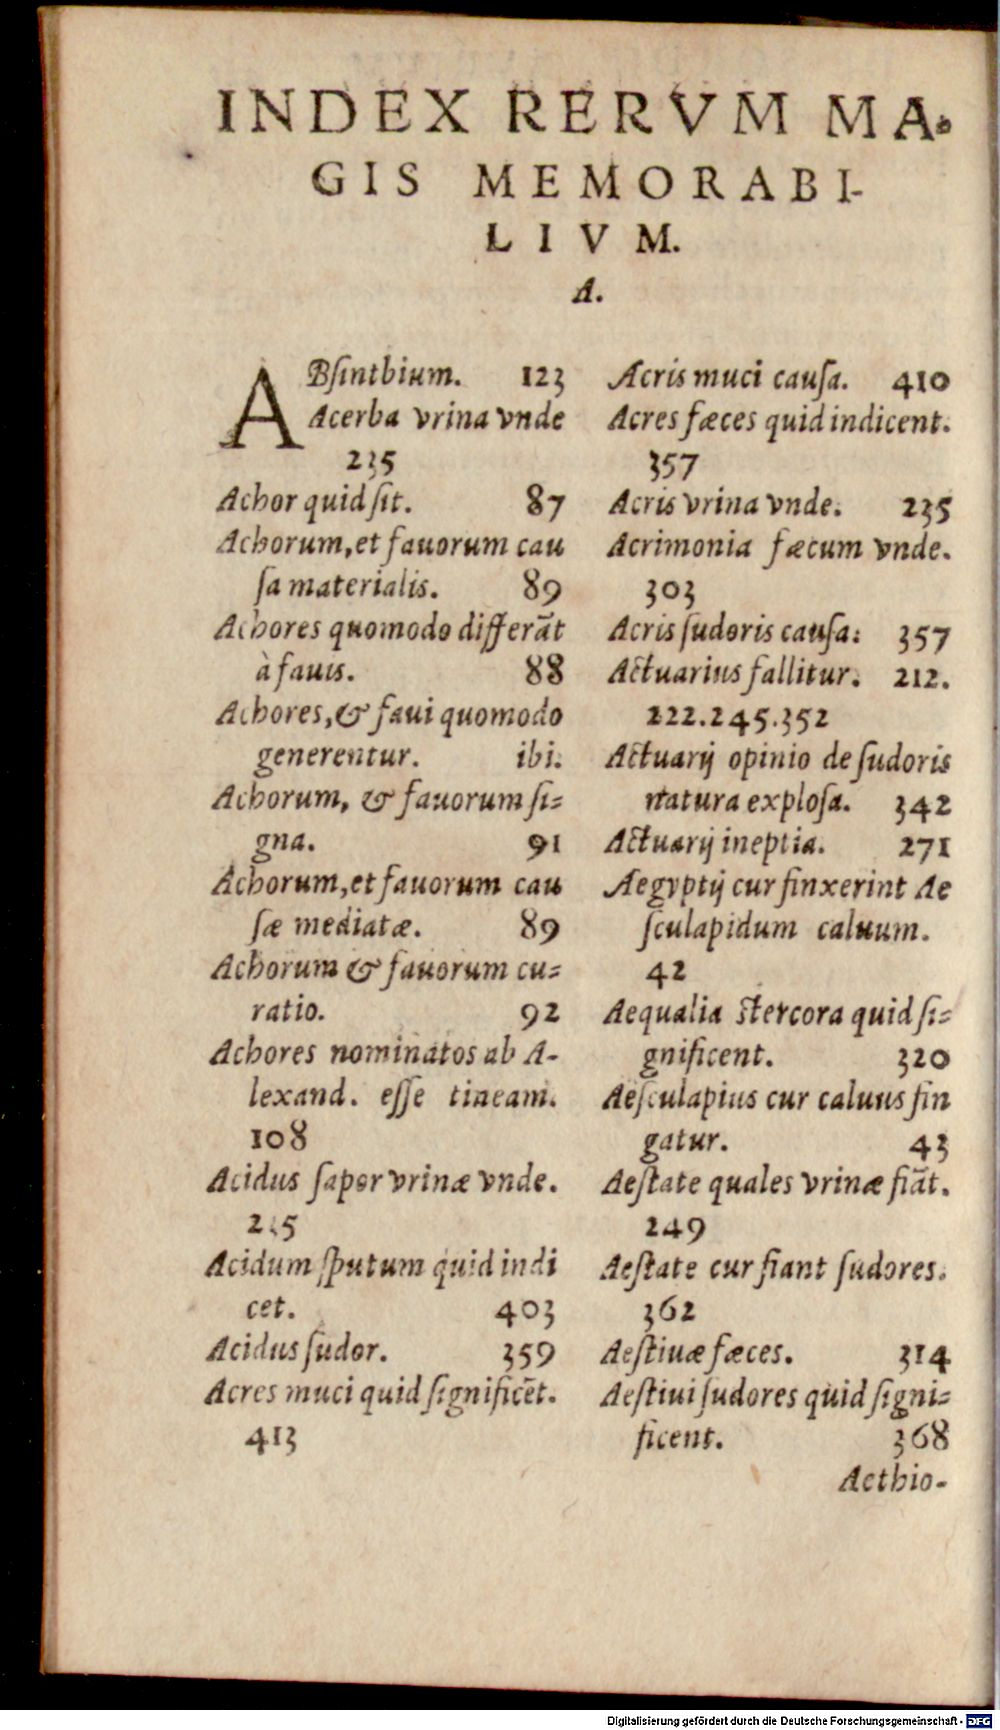 INDEX RERVM MA-
GIS MEMORABI-
LIVM.
A.
ABſinthium. 123
Acerba vrina vnde
235
Achor quid ſit. 87
Achorum, et fauorum cau
ſa materialis. 89
Achores quomodo differāt
à fauis. 88
Achores, & faui quomodo
generentur. ibi.
Achorum, & fauorum ſi=
gna. 91
Achorum, et fauorum cau
ſæ mediatæ. 89
Achorum & fauorum cu=
ratio. 92
Achores nominatos ab A-
lexand. eſſe tineam.
108
Acidus ſapor vrinæ vnde.
235
Acidum ſputum quid indi
cet. 403
Acidus ſudor. 359
Acres muci quid ſignificēt.
413
Acris muci cauſa. 410
Acres fæces quid indicent.
357
Acris vrina vnde. 235
Acrimonia fæcum vnde.
303
Acris ſudoris cauſa: 357
Actuarius fallitur. 212.
222.245.352
Actuarij opinio de ſudoris
natura exploſa. 342
Actuarij ineptia. 271
Aegyptij cur finxerint Ae
ſculapidum caluum.
42
Aequalia ſtercora quid ſi=
gnificent. 320
Aeſculapius cur caluus fin
gatur. 43
Aeſtate quales vrinæ fiāt.
249
Aeſtate cur fiant ſudores.
362
Aeſtiuæ fæces. 314
Aeſtiui ſudores quid ſigni=
ficent. 368
Aethio-
Digitalisierung gefördert durch die Deutsche Forschungsgemeinschaft - DFG